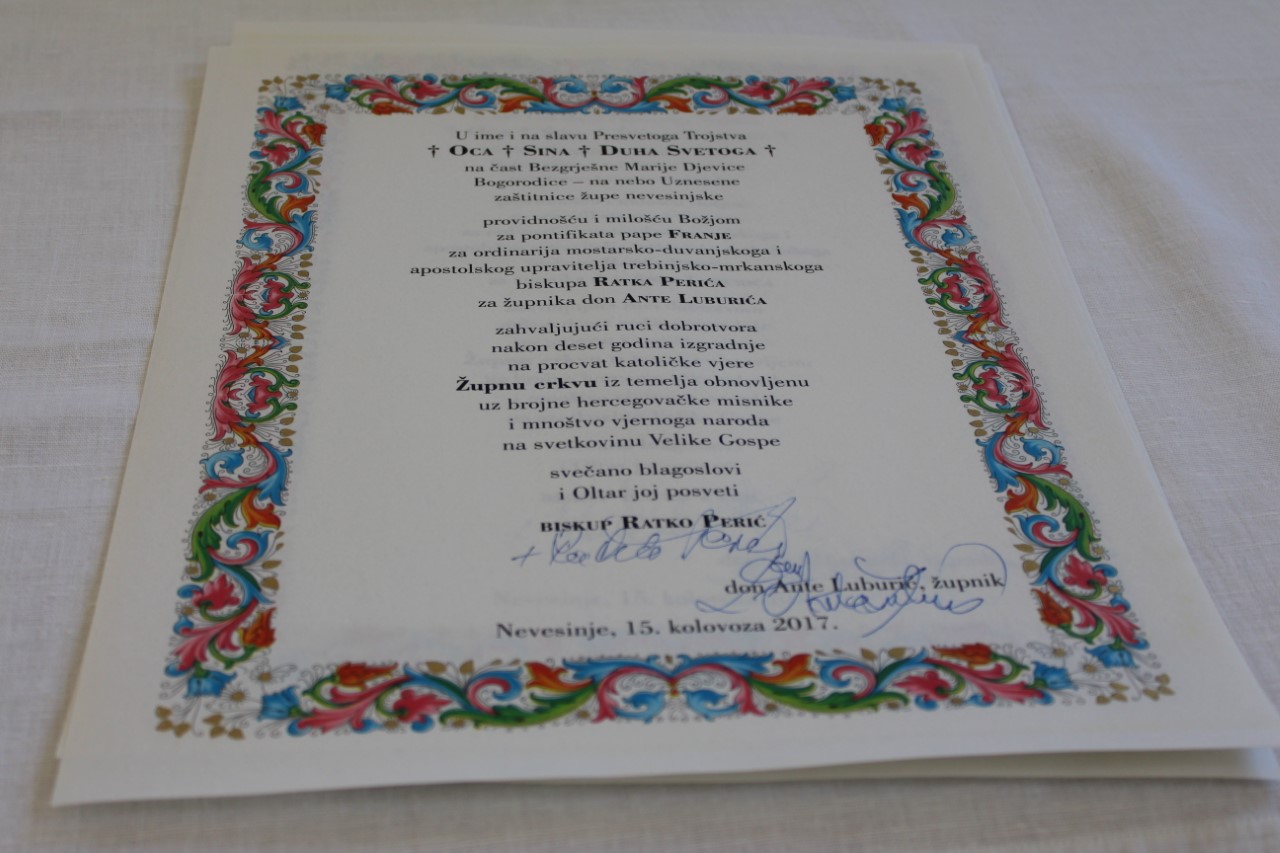 U ime i na slavu Presvetoga Trojstva
† OCA † SINA † DUHA SVETOGA †
na čast Bezgrješne Marije Djevice
Bogorodice – na nebo Uznesene
zaštitnice župe nevesinjske
providnošću i milošću Božjom
za pontifikata pape FRANJE
za ordinarija mostarsko-duvanjskoga i
apostolskog upravitelja trebinjsko-mrkanskoga
biskupa RATKA PERIĆA
za župnika don ANTE LUBURIĆA
zahvaljujući ruci dobrotvora
nakon deset godina izgradnje
na procvat katoličke vjere
Župnu crkvu iz temelja obnovljenu
uz brojne hercegovačke misnike
i mnoštvo vjernoga naroda
na svetkovinu Velike Gospe
svečano blagoslovi
i Oltar joj posveti
BISKUP RATKO PERIĆ
+ Ratko Perić
don Ante Luburić, župnik
Nevesinje, 15. kolovoza 2017.